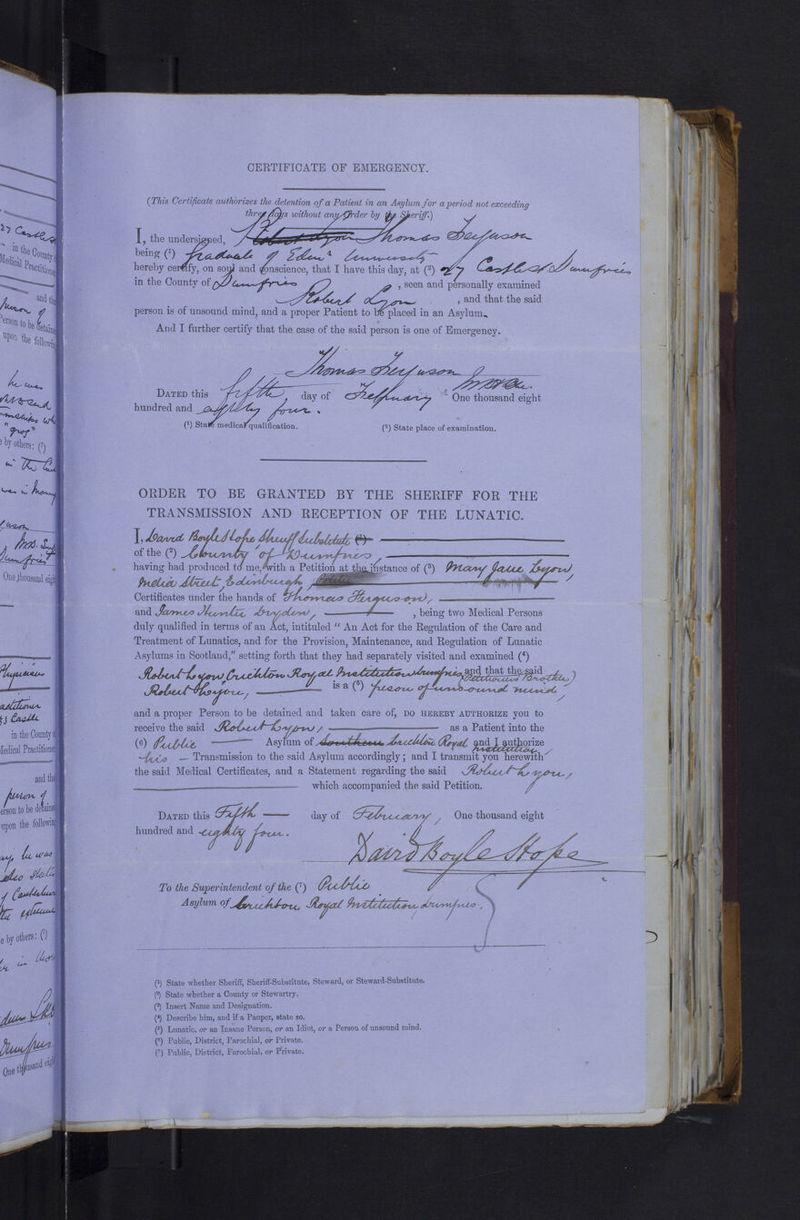 CERTIFICATE OF EMERGENCY.
(This Certificate authorizes the detention of a Patient in an Asylum for a period not exceeding
three days without any Order by the Sheriff.)
I, the undersigned, Thomas Ferguson
being (¹) Graduate of Edinr University
hereby certify, on soul and conscience, that I have this day, at (²) 27 Castle St Dumfries
in the County of Dumfries , seen and personally examined
Robert Lyon , and that the said
person is of unsound mind, and a proper Patient to be placed in an Asylum.
And I further certify that the case of the said person is one of Emergency.
Thomas Ferguson
DATED this fifth day of February One thousand eight
hundred and eighty four.
(¹) State medical qualification. (²) State place of examination.
ORDER TO BE GRANTED BY THE SHERIFF FOR THE
TRANSMISSION AND RECEPTION OF THE LUNATIC.
I, David Boyle Hope Sheriff Substitute (¹)
of the (²) County of Dumfries,
having had produced to me, with a Petition at the instance of (³) Mary Jane Lyon,
India Street, Edinburgh,
Certificates under the hands of Thomas Ferguson,
and James Hunter Dryden, , being two Medical Persons
duly qualified in terms of an Act, intituled “ An Act for the Regulation of the Care and
Treatment of Lunatics, and for the Provision, Maintenance, and Regulation of Lunatic
Asylums in Scotland,” setting forth that they had separately visited and examined (⁴)
Robert Lyon, Crichton Royal Institution, Dumfries, and that the said
Robert Lyon, (Petitioner's Brother) is a (⁵) person of unsound mind,
and a proper Person to be detained and taken care of, DO HEREBY AUTHORIZE you to
receive the said Robert Lyon, as a Patient into the
(⁶) Public Asylum of Southern Crichton Royal Institution and I authorize
his Transmission to the said Asylum accordingly; and I transmit you herewith
the said Medical Certificates, and a Statement regarding the said Robert Lyon,
which accompanied the said Petition.
DATED this Fifth day of February, One thousand eight
hundred and eighty four.
David Boyle Hope
To the Superintendent of the (⁷) Public
Asylum of Crichton Royal Institution, Dumfries.
(¹) State whether Sheriff, Sheriff-Substitute, Steward, or Steward-Substitute.
(²) State whether a County or Stewartry.
(³) Insert Name and Designation.
(⁴) Describe him, and if a Pauper, state so.
(⁵) Lunatic, or an Insane Person, or an Idiot, or a Person of unsound mind.
(⁶) Public, District, Parochial, or Private.
(⁷) Public, District, Parochial, or Private.